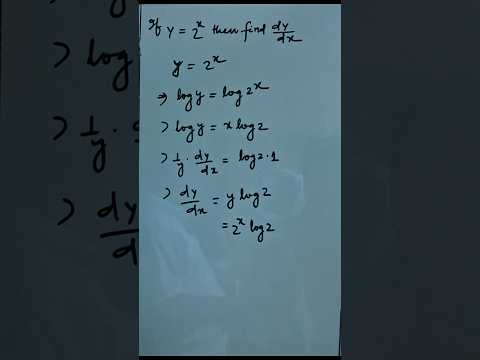 If y = 2^x then find dy/dx
y = 2^x
⇒ log y = log 2^x
> log y = x log 2
> 1/y · dy/dx = log 2 · 1
> dy/dx = y log 2
= 2^x log 2